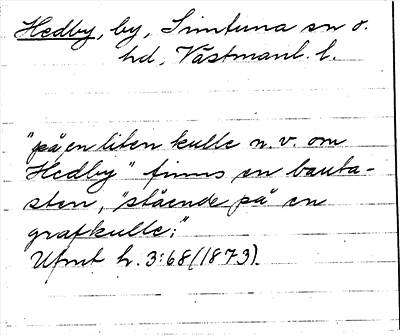 Hedby, by, Simtuna sn o.
hd, Västmanl. l.
"på en liten kulle n.v. om
Hedby" finns en bauta-
sten, "stående på en
grafkulle:"
Ufmt h. 3:68 (1873).